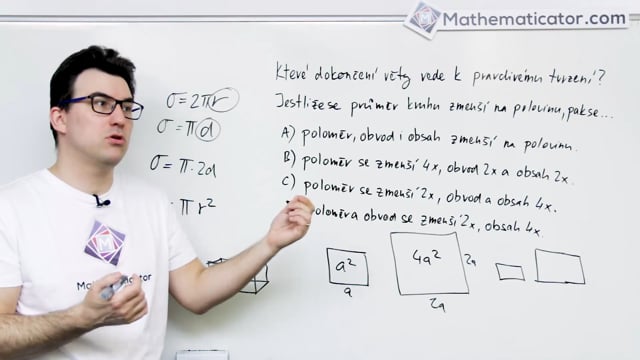 Mathematicator.com
Které dokončení věty vede k pravdivému tvrzení?
Jestliže se průměr kruhu zmenší na polovinu, pak se...
A) poloměr, obvod i obsah zmenší na polovinu.
B) poloměr se zmenší 4x, obvod 2x a obsah 2x.
C) poloměr se zmenší 2x, obvod a obsah 4x.
poloměr a obvod se zmenší 2x, obsah 4x.
σ = 2πr
σ = πd
σ = π·2d
π r²
a²
a
4a²
2a
2a